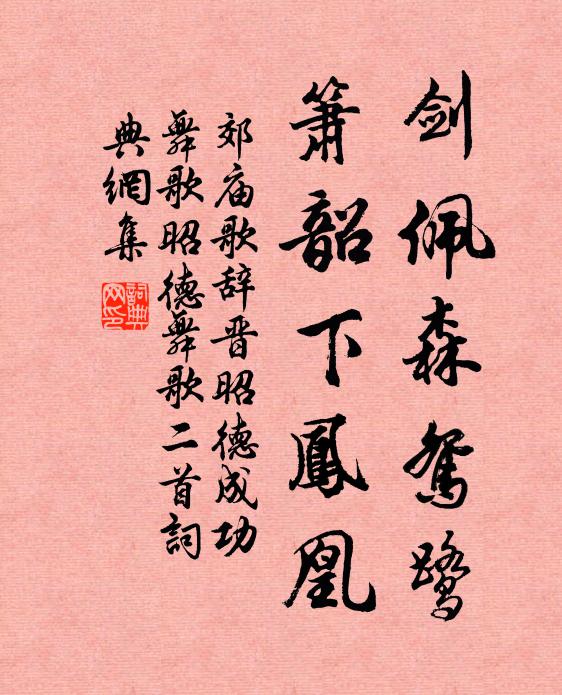 剑佩森鸳鹭
箫韶下鳳凰
郊庙歌辞晋昭德成功
舞歌昭德舞歌二首詞
典網集
詞典網印